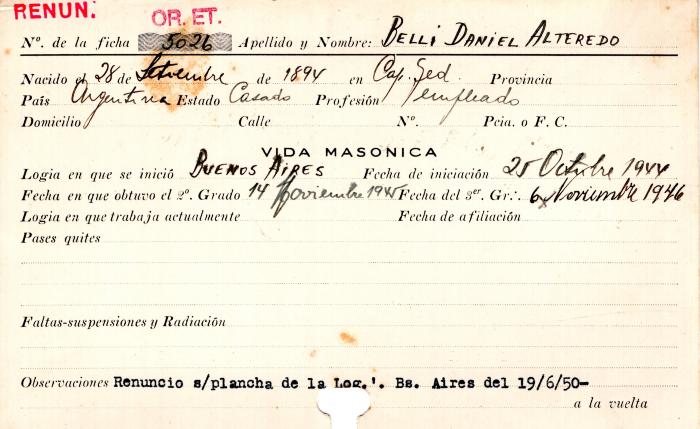 RENUN.
OR. ET.
Nº. de la ficha 5026 Apellido y Nombre: BELLI DANIEL ALTEREDO
Nacido el 28 de Setiembre de 1894 en Cap. Fed. Provincia
País Argentina Estado Casado Profesión empleado
Domicilio Calle Nº. Pcia. o F. C.
VIDA MASONICA
Logia en que se inició BUENOS AIRES Fecha de iniciación 25 Octubre 1944
Fecha en que obtuvo el 2º. Grado 14 Noviembre 1945 Fecha del 3er. Gr∴. 6 Noviembre 1946
Logia en que trabaja actualmente Fecha de afiliación
Pases quites
Faltas-suspensiones y Radiación
Observaciones Renuncio s/plancha de la Log.'. Bs. Aires del 19/6/50-
a la vuelta